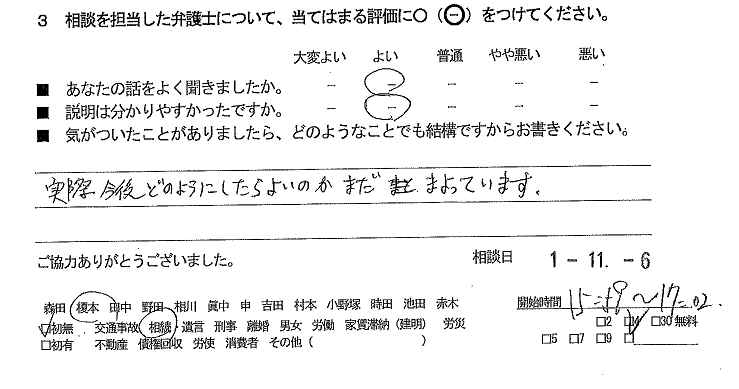 3 相談を担当した弁護士について、当てはまる評価に○(㊀)をつけてください。
大変よい よい 普通 やや悪い 悪い
■ あなたの話をよく聞きましたか。 － － － － －
■ 説明は分かりやすかったですか。 － － － － －
■ 気がついたことがありましたら、どのようなことでも結構ですからお書きください。
実際 今後どのようにしたらよいのか まだ まよっています。
ご協力ありがとうございました。 相談日 1-11.-6
森田 榎本 田中 野田 相川 眞中 申 吉田 村本 小野塚 時田 池田 赤木 開始時間 15:59~17:02
□初無 交通事故 相続・遺言 刑事 離婚 男女 労働 家賃滞納(建明) 労災 □2 □14 □30 無料
□初有 不動産 債権回収 労使 消費者 その他( ) □5 □7 □9 □